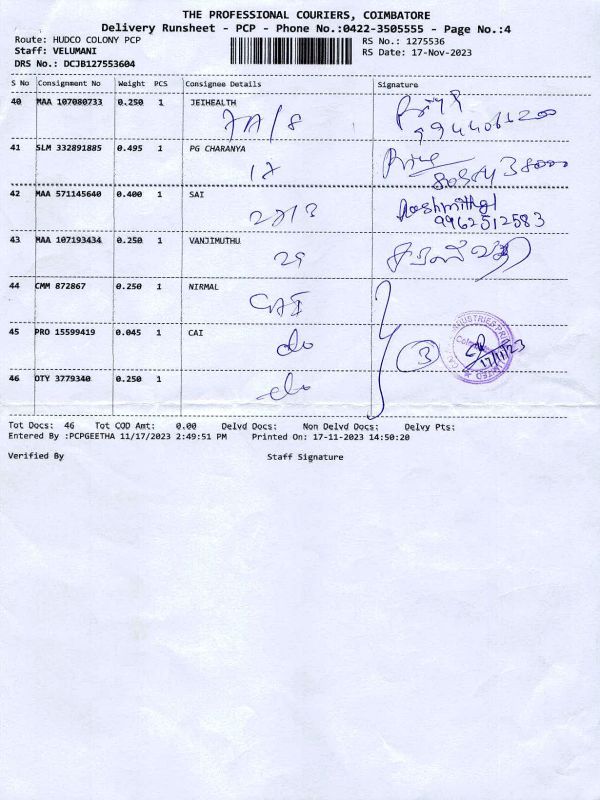 THE PROFESSIONAL COURIERS, COIMBATORE
Delivery Runsheet - PCP - Phone No.:0422-3505555 - Page No.:4
Route: HUDCO COLONY PCP
RS No.: 1275536
Staff: VELUMANI
RS Date: 17-Nov-2023
DRS No.: DCJB127553604
S No Consignment No Weight PCS Consignee Details Signature
40 MAA 107080733 0.250 1 JEIHEALTH
7A/8
41 SLM 332891885 0.495 1 PG CHARANYA
17
42 MAA 571145640 0.400 1 SAI
Rashmitha
9962512583
43 MAA 107193434 0.250 1 VANJIMUTHU
29
44 CMM 872867 0.250 1 NIRMAL
CAI
45 PRO 15599419 0.045 1 CAI
do
3
17/11/23
46 OTY 3779340 0.250 1
do
Tot Docs: 46 Tot COD Amt: 0.00 Delvd Docs: Non Delvd Docs: Delvy Pts:
Entered By :PCPGEETHA 11/17/2023 2:49:51 PM Printed On: 17-11-2023 14:50:20
Verified By Staff Signature